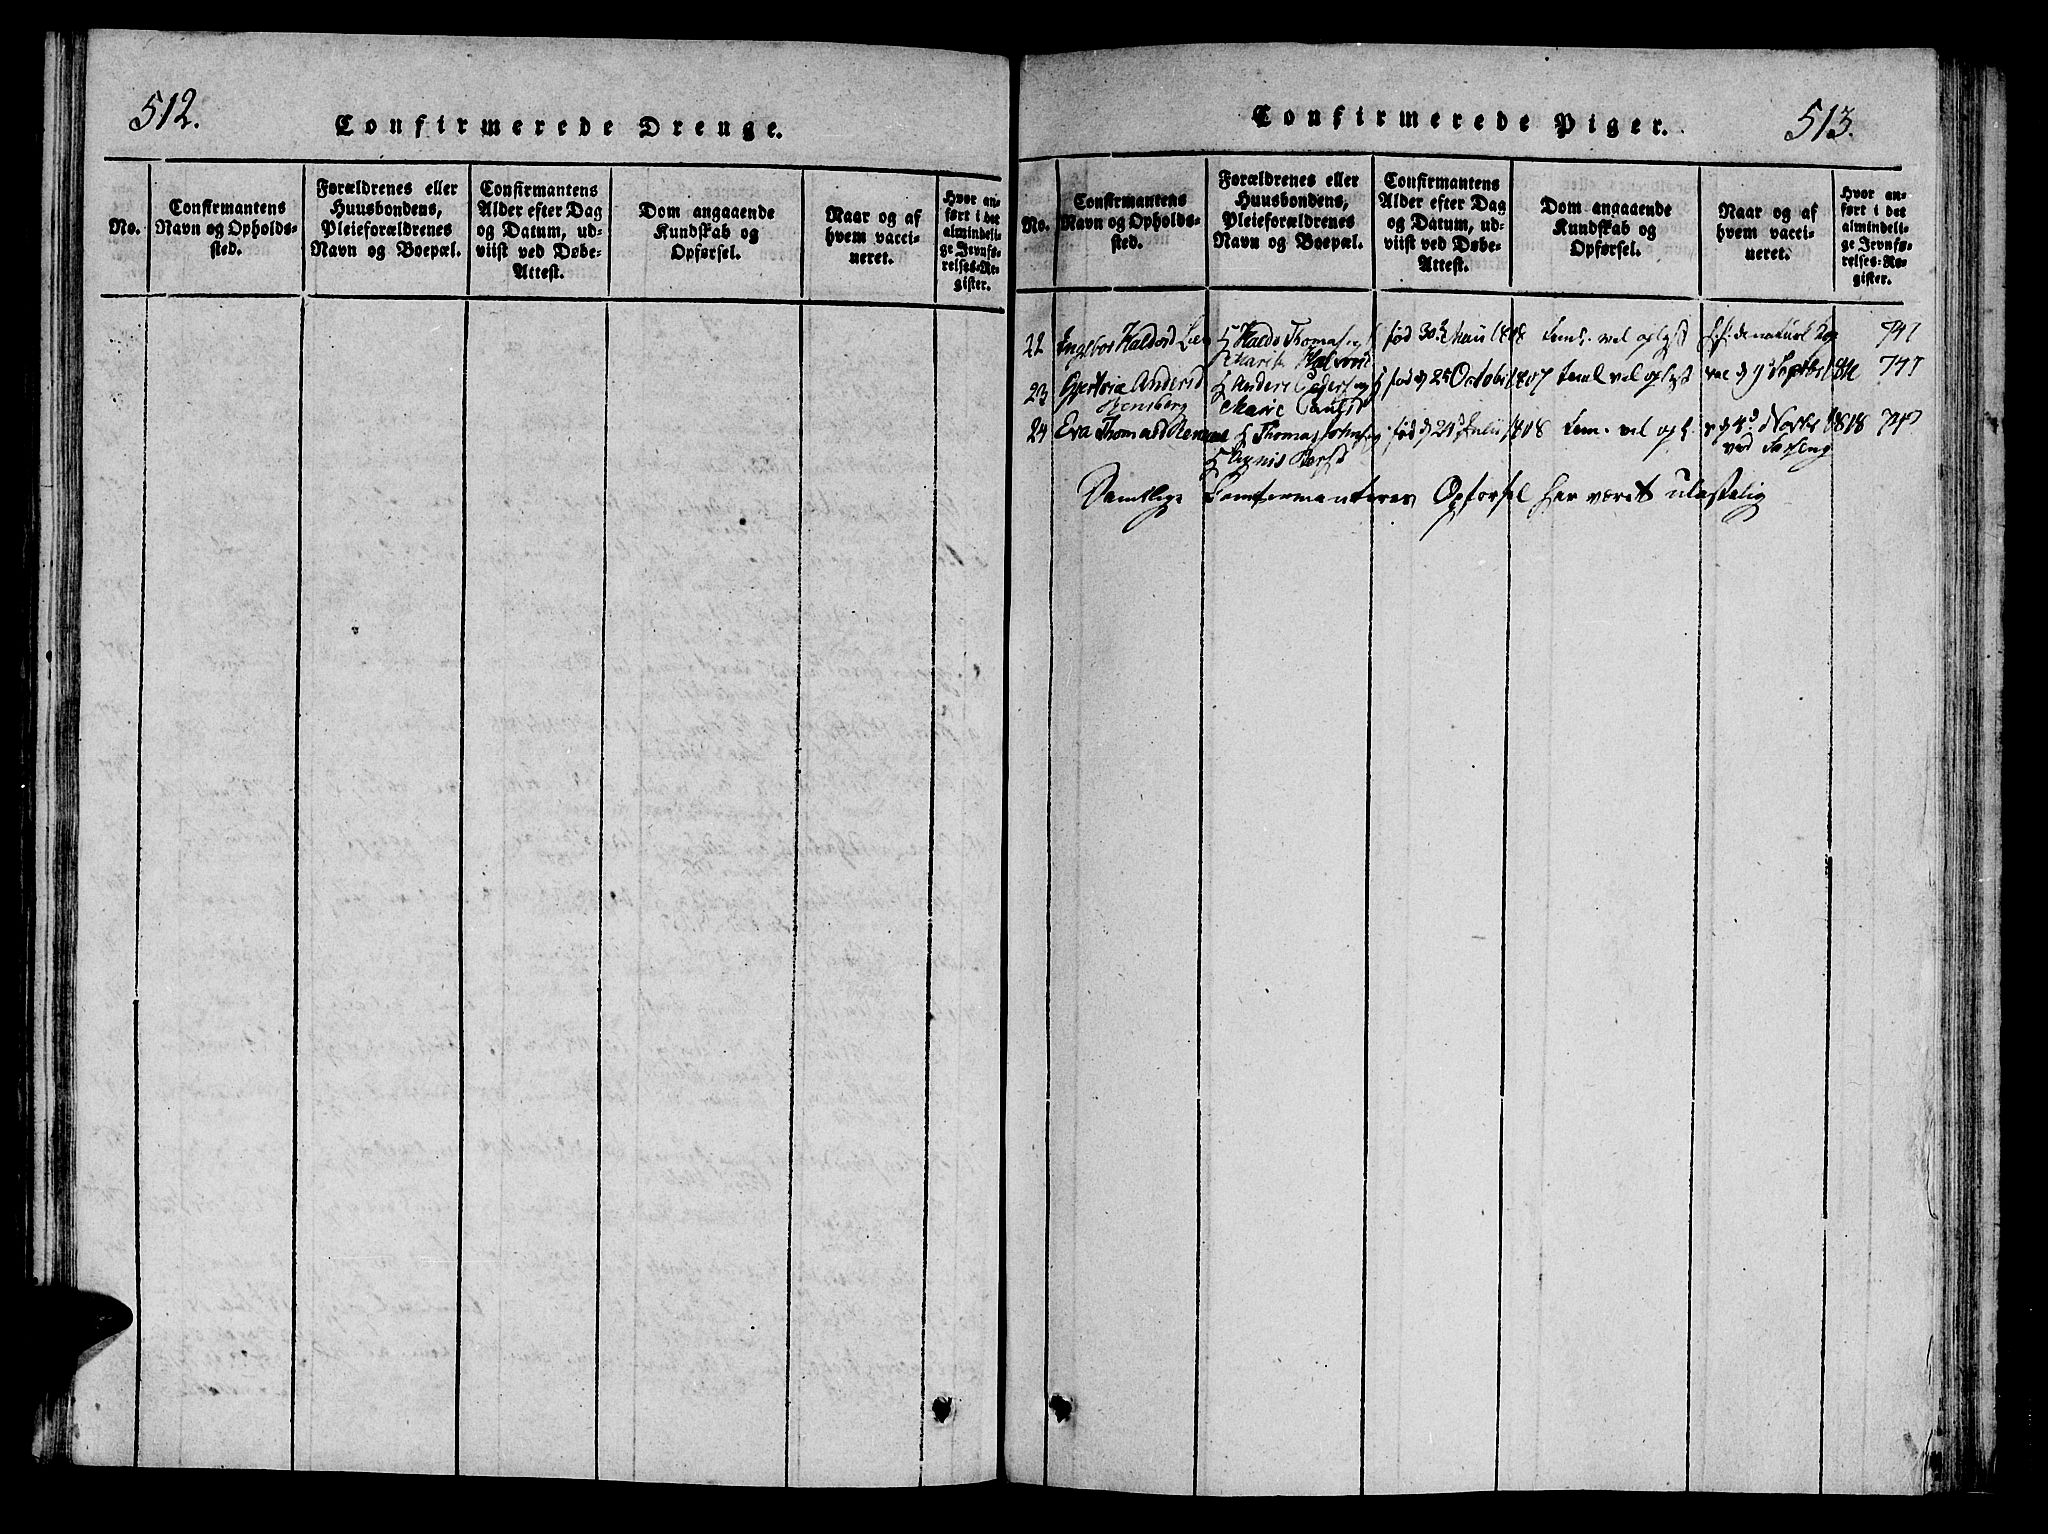 512.
Confirmerede Drenge.
No.
Confirmantens
Navn og Opholds-
sted.
Forældrenes eller
Huusbondens,
Pleieforældrenes
Navn og Boepæl.
Confirmantens
Alder efter Dag
og Datum, ud-
viist ved Døbe-
Attest.
Dom angaaende
Kundskab og
Opførsel.
Naar og af
hvem vacci-
neret.
Hvor an-
ført i det
almindeli-
ge Jevnfø-
relses-Re-
gister.
Confirmerede Piger.
513.
No.
Confirmantens
Navn og Opholds-
sted.
Forældrenes eller
Huusbondens,
Pleieforældrenes
Navn og Boepæl.
Confirmantens
Alder efter Dag
og Datum, ud-
viist ved Døbe-
Attest.
Dom angaaende
Kundskab og
Opførsel.
Naar og af
hvem vacci-
neret.
Hvor an-
ført i det
almindeli-
ge Jevnfø-
relses-Re-
gister.
22 Halvord Thomas og født 30 1808 vel oplyst 747
Marit Halvord
23 Anders Peders og født d 25 October 1807 vel oplyst vac d Septbr 747
Marie
24 Eva Thomasd Thomas Johns og født d 21 Julii 1808 vel opl. 1818 747
ved
Samtlige Confirmanteres Opførsel har været ulastelig